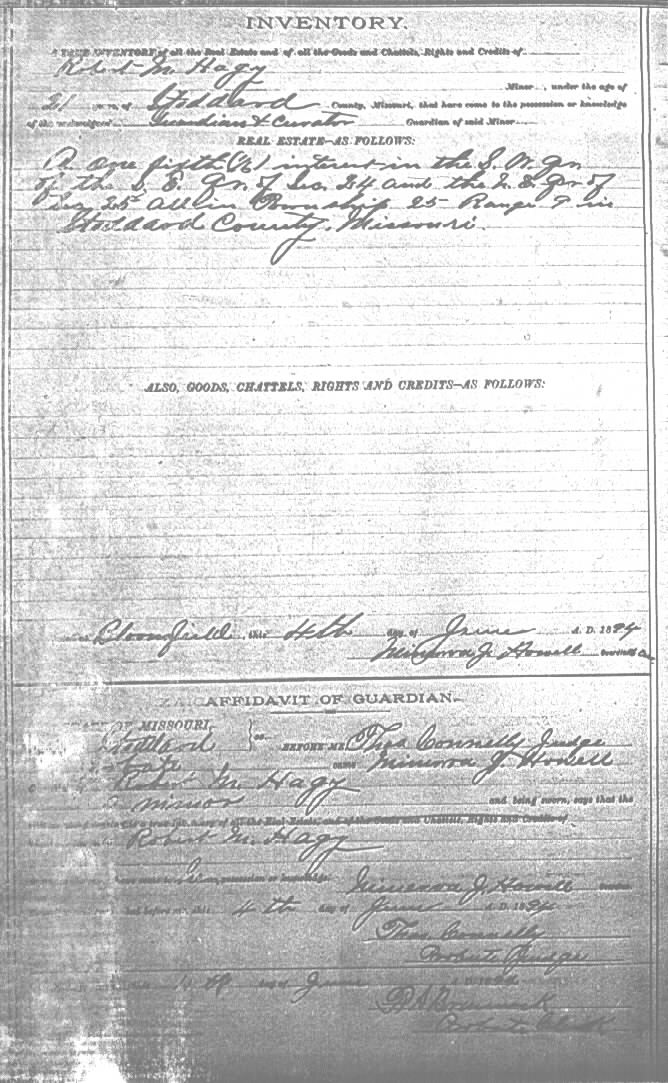 INVENTORY.
A TRUE INVENTORY of all the Real Estate and of all the Goods and Chattels, Rights and Credits of
Robert M. Hagy
Minor , under the age of
21 years, of Stoddard County, Missouri, that have come to the possession or knowledge
of the undersigned Guardian & Curator Guardian of said Minor
REAL ESTATE—AS FOLLOWS:
A one fifth (1/5) interest in the S. W. qr
of the S. E. qr. of Sec. 24 and the N. E. qr of
Sec 25 all in Township 25 Range 9 in
Stoddard County, Missouri.
ALSO, GOODS, CHATTELS, RIGHTS AND CREDITS—AS FOLLOWS:
Bloomfield, this 4th day of June A. D. 1894
Minerva J. Howell
AFFIDAVIT OF GUARDIAN.
OF MISSOURI,
Stoddard ss. BEFORE ME Thos Connelly Judge
came Minerva J. Howell
Robert M. Hagy
a minor and being sworn, says that the
is a true inventory of all the Real Estate, and of the Goods and Chattels, Rights and Credits of
Robert M. Hagy
possession or knowledge.
Minerva J. Howell
before me, this 4th day of June A. D. 1894
Thos Connelly
Probate Judge
day of June A. D. 1894
Probate Clerk